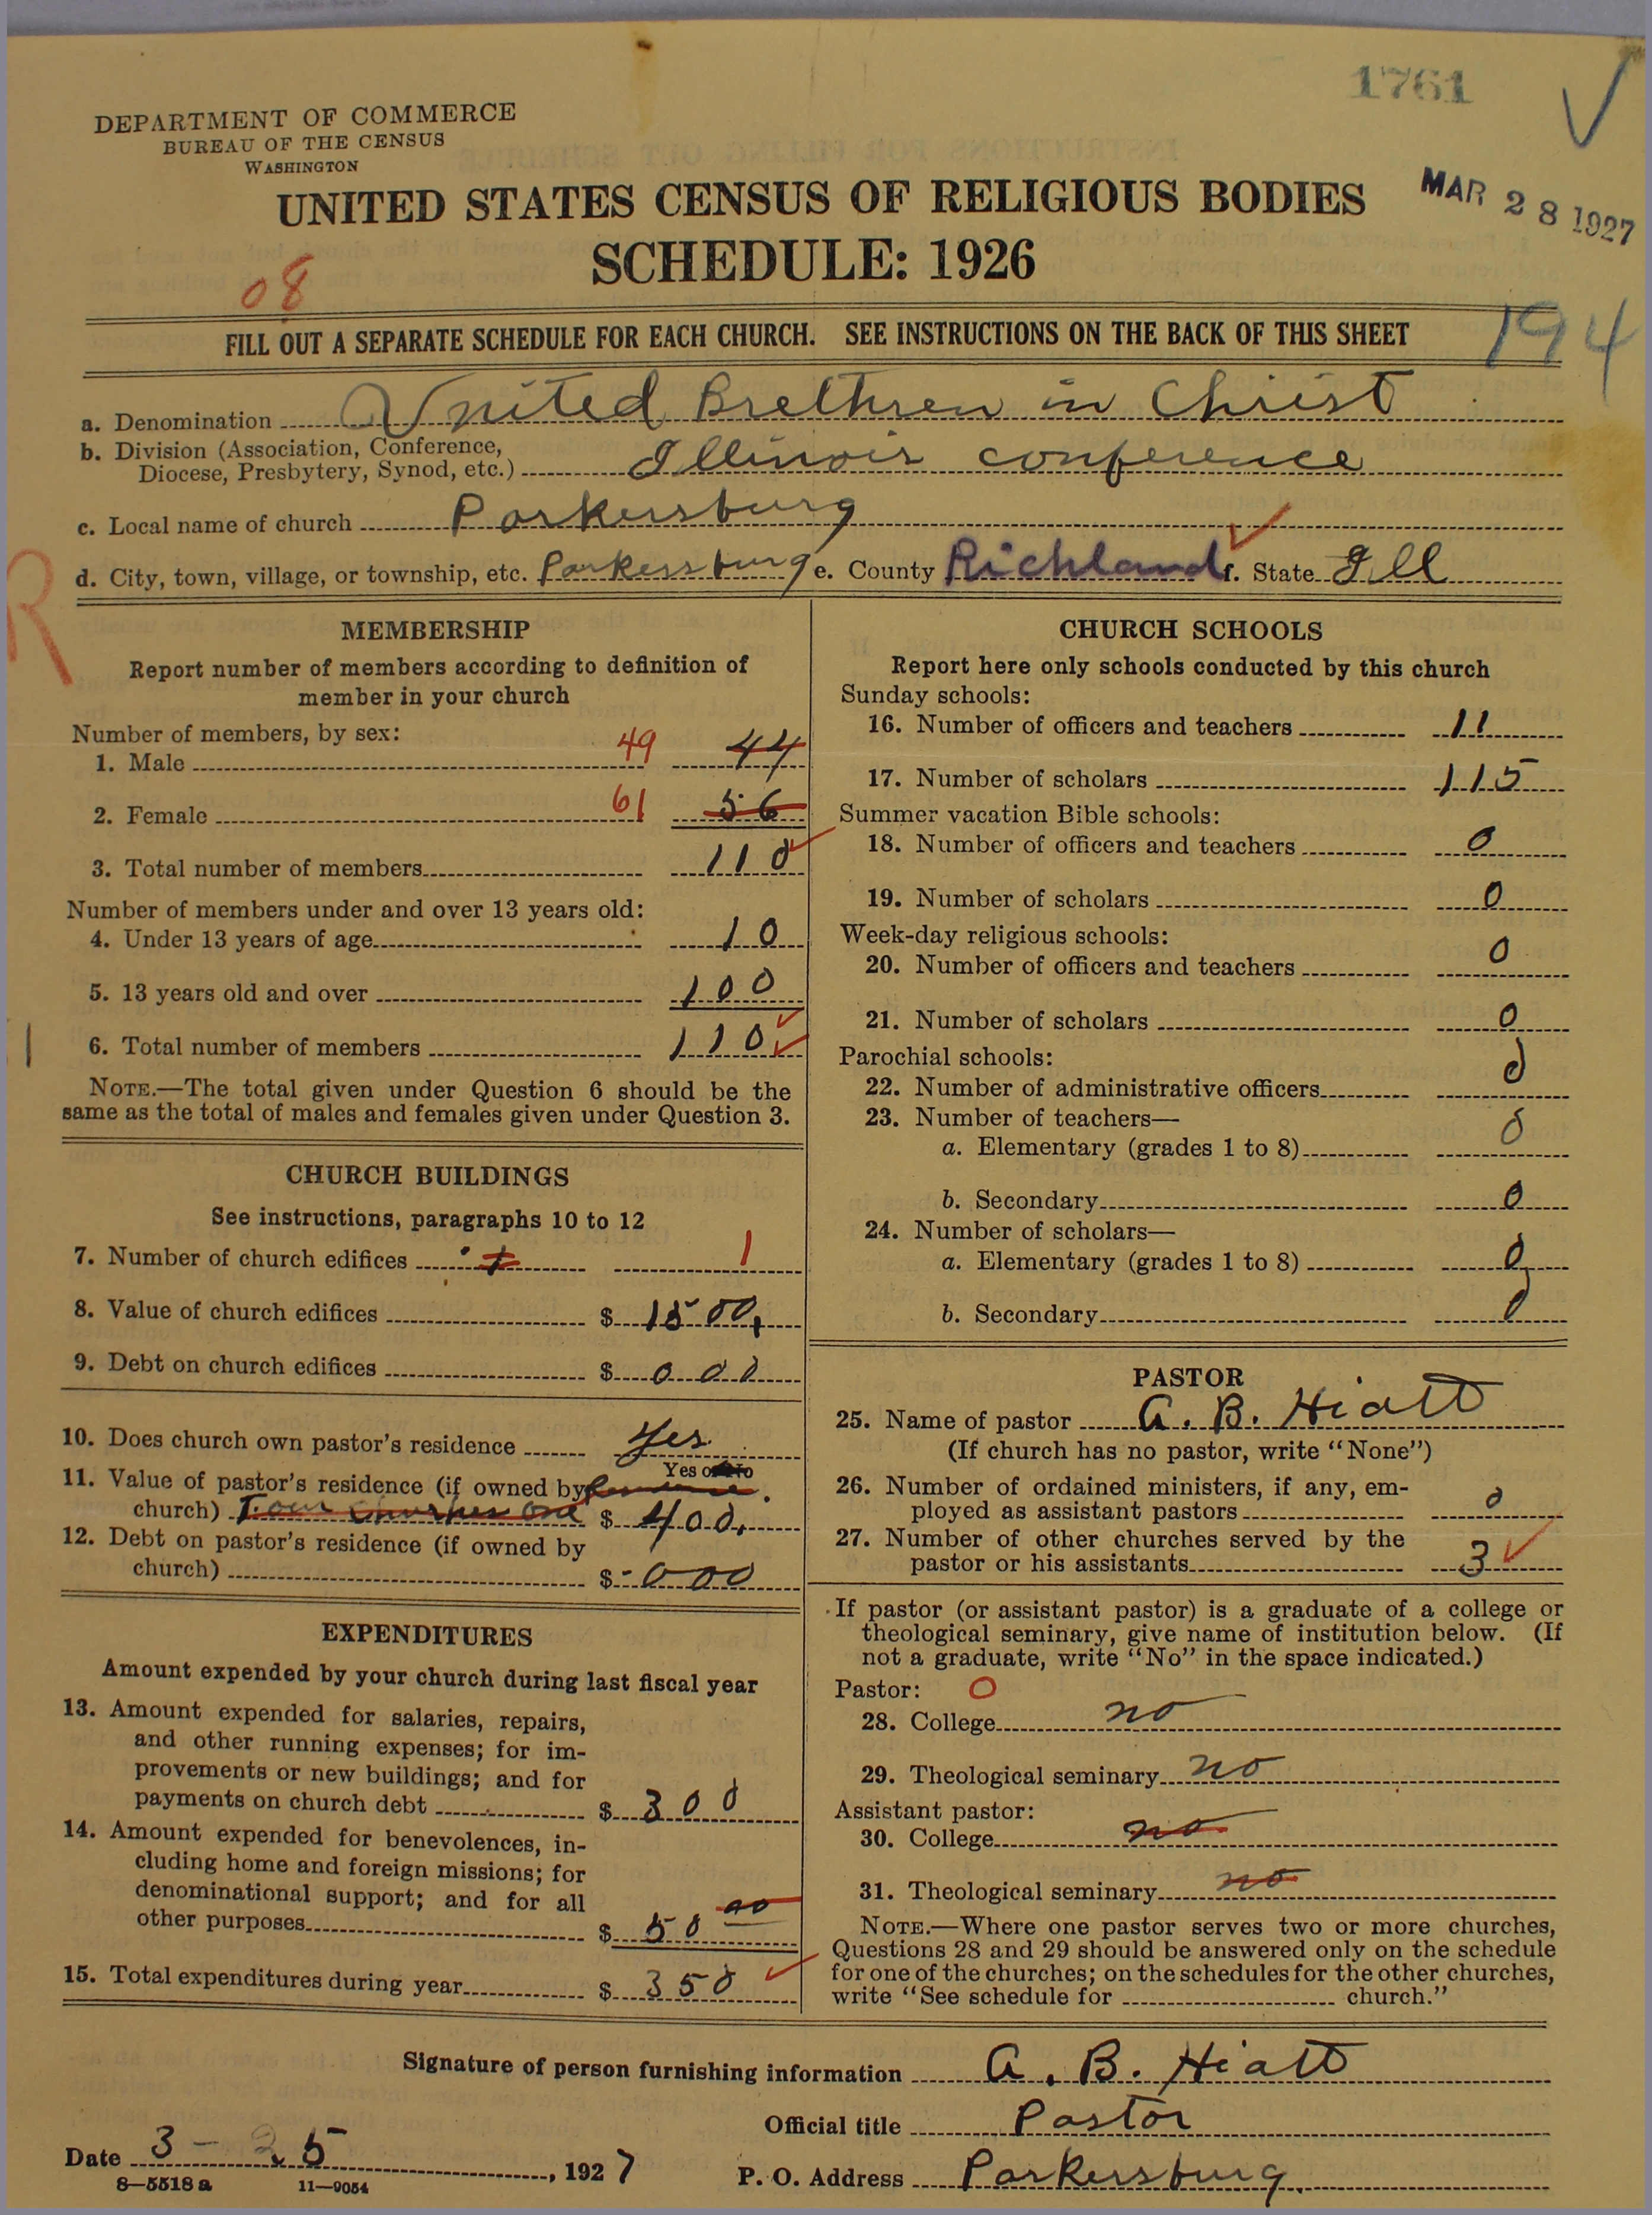 1761
DEPARTMENT OF COMMERCE
BUREAU OF THE CENSUS
WASHINGTON
UNITED STATES CENSUS OF RELIGIOUS BODIES
MAR 28 1927
SCHEDULE: 1926
08
FILL OUT A SEPARATE SCHEDULE FOR EACH CHURCH. SEE INSTRUCTIONS ON THE BACK OF THIS SHEET
194
a. Denomination United Brethren in Christ
b. Division (Association, Conference,
Diocese, Presbytery, Synod, etc.) Illinois conference
c. Local name of church Parkersburg
d. City, town, village, or township, etc. Parkersburg e. County Richland f. State Ill
R
MEMBERSHIP
Report number of members according to definition of
member in your church
Number of members, by sex:
1. Male 49 44
2. Female 61 56
3. Total number of members 110
Number of members under and over 13 years old:
4. Under 13 years of age 10
5. 13 years old and over 100
6. Total number of members 110
NOTE.—The total given under Question 6 should be the
same as the total of males and females given under Question 3.
CHURCH BUILDINGS
See instructions, paragraphs 10 to 12
7. Number of church edifices 1 1
8. Value of church edifices $ 1500,
9. Debt on church edifices $ 000
10. Does church own pastor's residence Yes
Yes or No
11. Value of pastor's residence (if owned by
church) Four Churches One $ 400.
12. Debt on pastor's residence (if owned by
church) $ 000
EXPENDITURES
Amount expended by your church during last fiscal year
13. Amount expended for salaries, repairs,
and other running expenses; for im-
provements or new buildings; and for
payments on church debt $ 300
14. Amount expended for benevolences, in-
cluding home and foreign missions; for
denominational support; and for all
other purposes $ 50 00
15. Total expenditures during year $ 350
CHURCH SCHOOLS
Report here only schools conducted by this church
Sunday schools:
16. Number of officers and teachers 11
17. Number of scholars 115
Summer vacation Bible schools:
18. Number of officers and teachers 0
19. Number of scholars 0
Week-day religious schools:
20. Number of officers and teachers 0
21. Number of scholars 0
Parochial schools:
22. Number of administrative officers 0
23. Number of teachers—
a. Elementary (grades 1 to 8) 0
b. Secondary 0
24. Number of scholars—
a. Elementary (grades 1 to 8) 0
b. Secondary 0
PASTOR
25. Name of pastor A. B. Hiatt
(If church has no pastor, write "None")
26. Number of ordained ministers, if any, em-
ployed as assistant pastors 0
27. Number of other churches served by the
pastor or his assistants 3
If pastor (or assistant pastor) is a graduate of a college or
theological seminary, give name of institution below. (If
not a graduate, write "No" in the space indicated.)
Pastor: 0
28. College no
29. Theological seminary no
Assistant pastor:
30. College no
31. Theological seminary no
NOTE.—Where one pastor serves two or more churches,
Questions 28 and 29 should be answered only on the schedule
for one of the churches; on the schedules for the other churches,
write "See schedule for church."
Signature of person furnishing information A. B. Hiatt
Official title Pastor
Date 3-25, 1927
P. O. Address Parkersburg.
8—5518a 11—9054